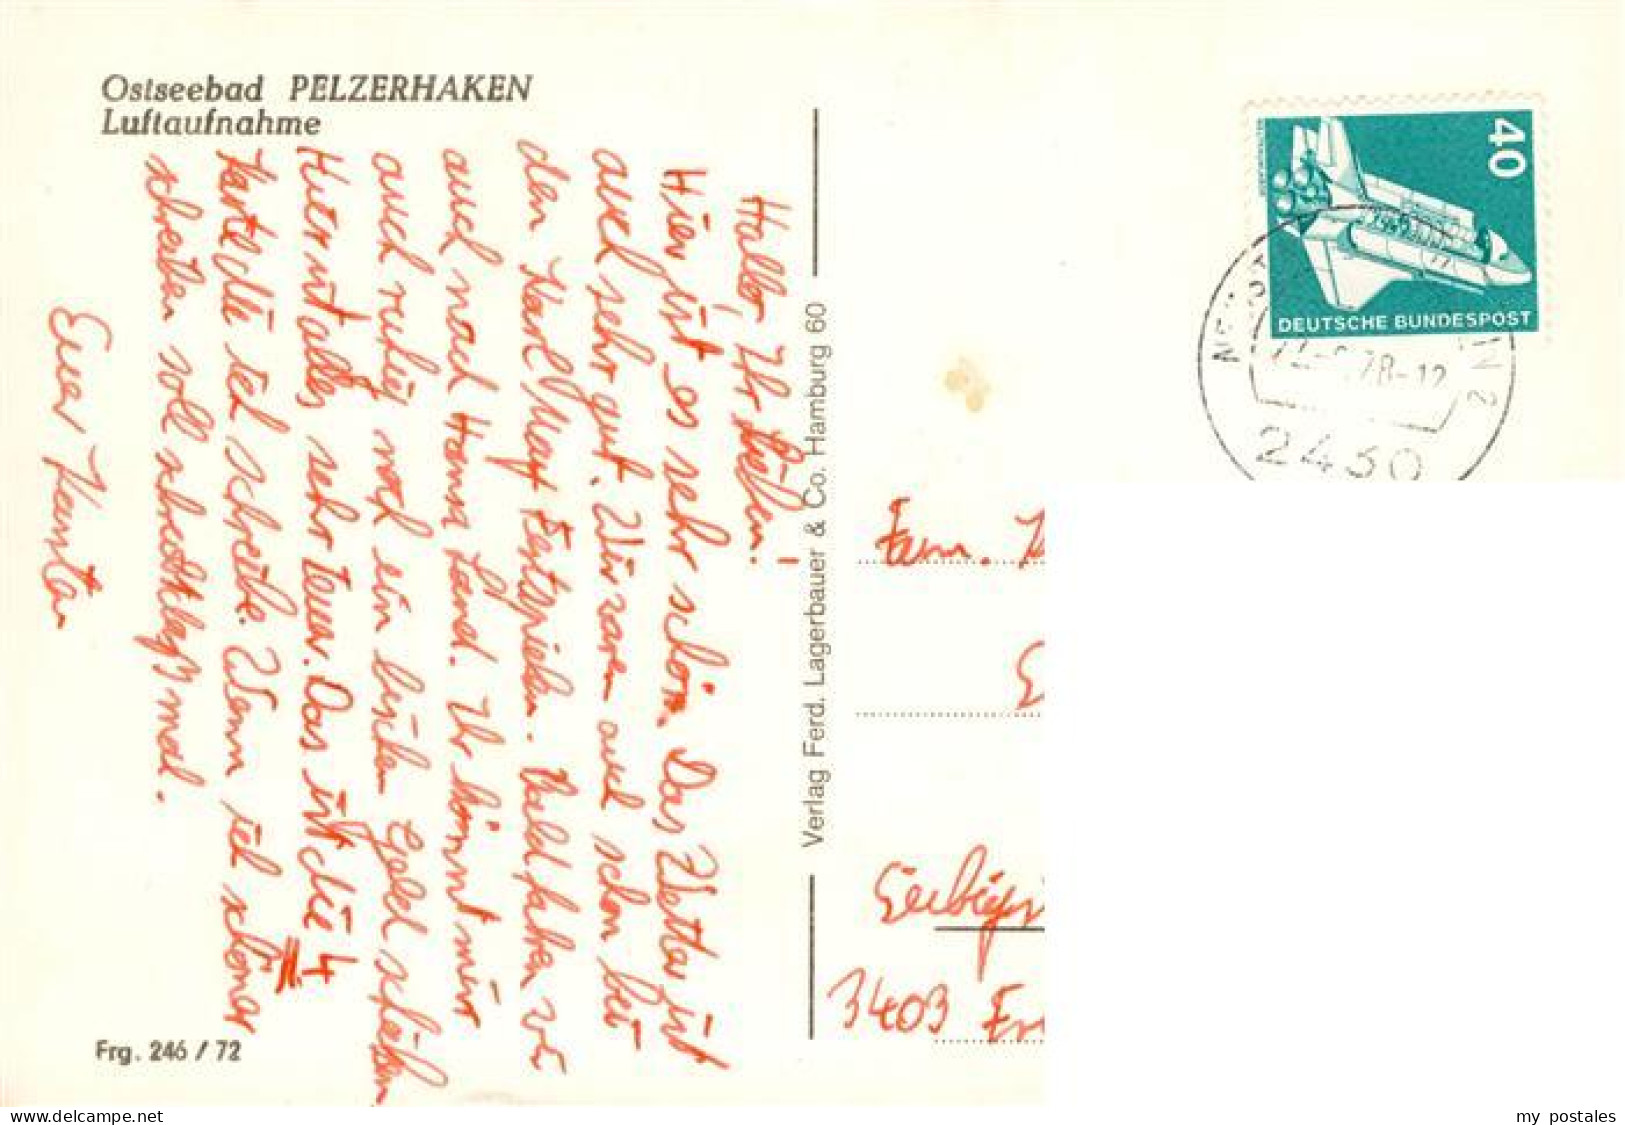 Ostseebad PELZERHAKEN
Luftaufnahme
Hallo, Ihr Lieben!
Hier ist es sehr schön. Das Wetter ist
auch sehr gut. Wir waren auch schon bei
den Karl May Festspielen. Bald fahren wir
auch nach Hansa Land. Ihr könnt mir
auch ruhig noch ein bischen Geld schicken
Hier ist alles sehr teuer. Das ist die 4
Karte die ich schreibe. Wenn ich schöner
schreiben soll schreibt mal.
Euer Karsten
Frg. 246 / 72
Verlag Ferd. Lagerbauer & Co. Hamburg 60
40
DEUTSCHE BUNDESPOST
78-12
2430
Fam.
3403
my postales